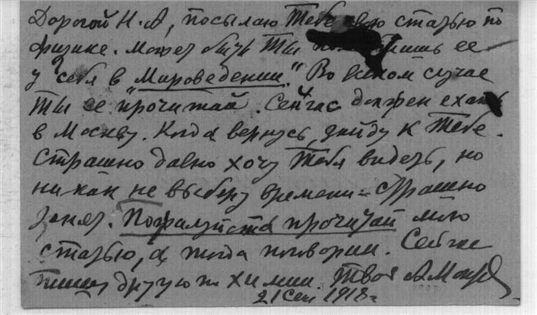 Дорогой Н.А, посылаю Тебе свою статью по
физике. Может быть Ты ее
у себя в "Мироведении". Во всяком случае
Ты ее прочитай. Сейчас должен ехать
в Москву. Когда вернусь, зайду к Тебе.
Страшно давно хочу Тебя видеть, но
никак не выберу времени - страшно
занят. Пожалуйста прочитай мою
статью, а тогда поговорим. Сейчас
пишу другую по химии. Твой
21 Сен 1918 г